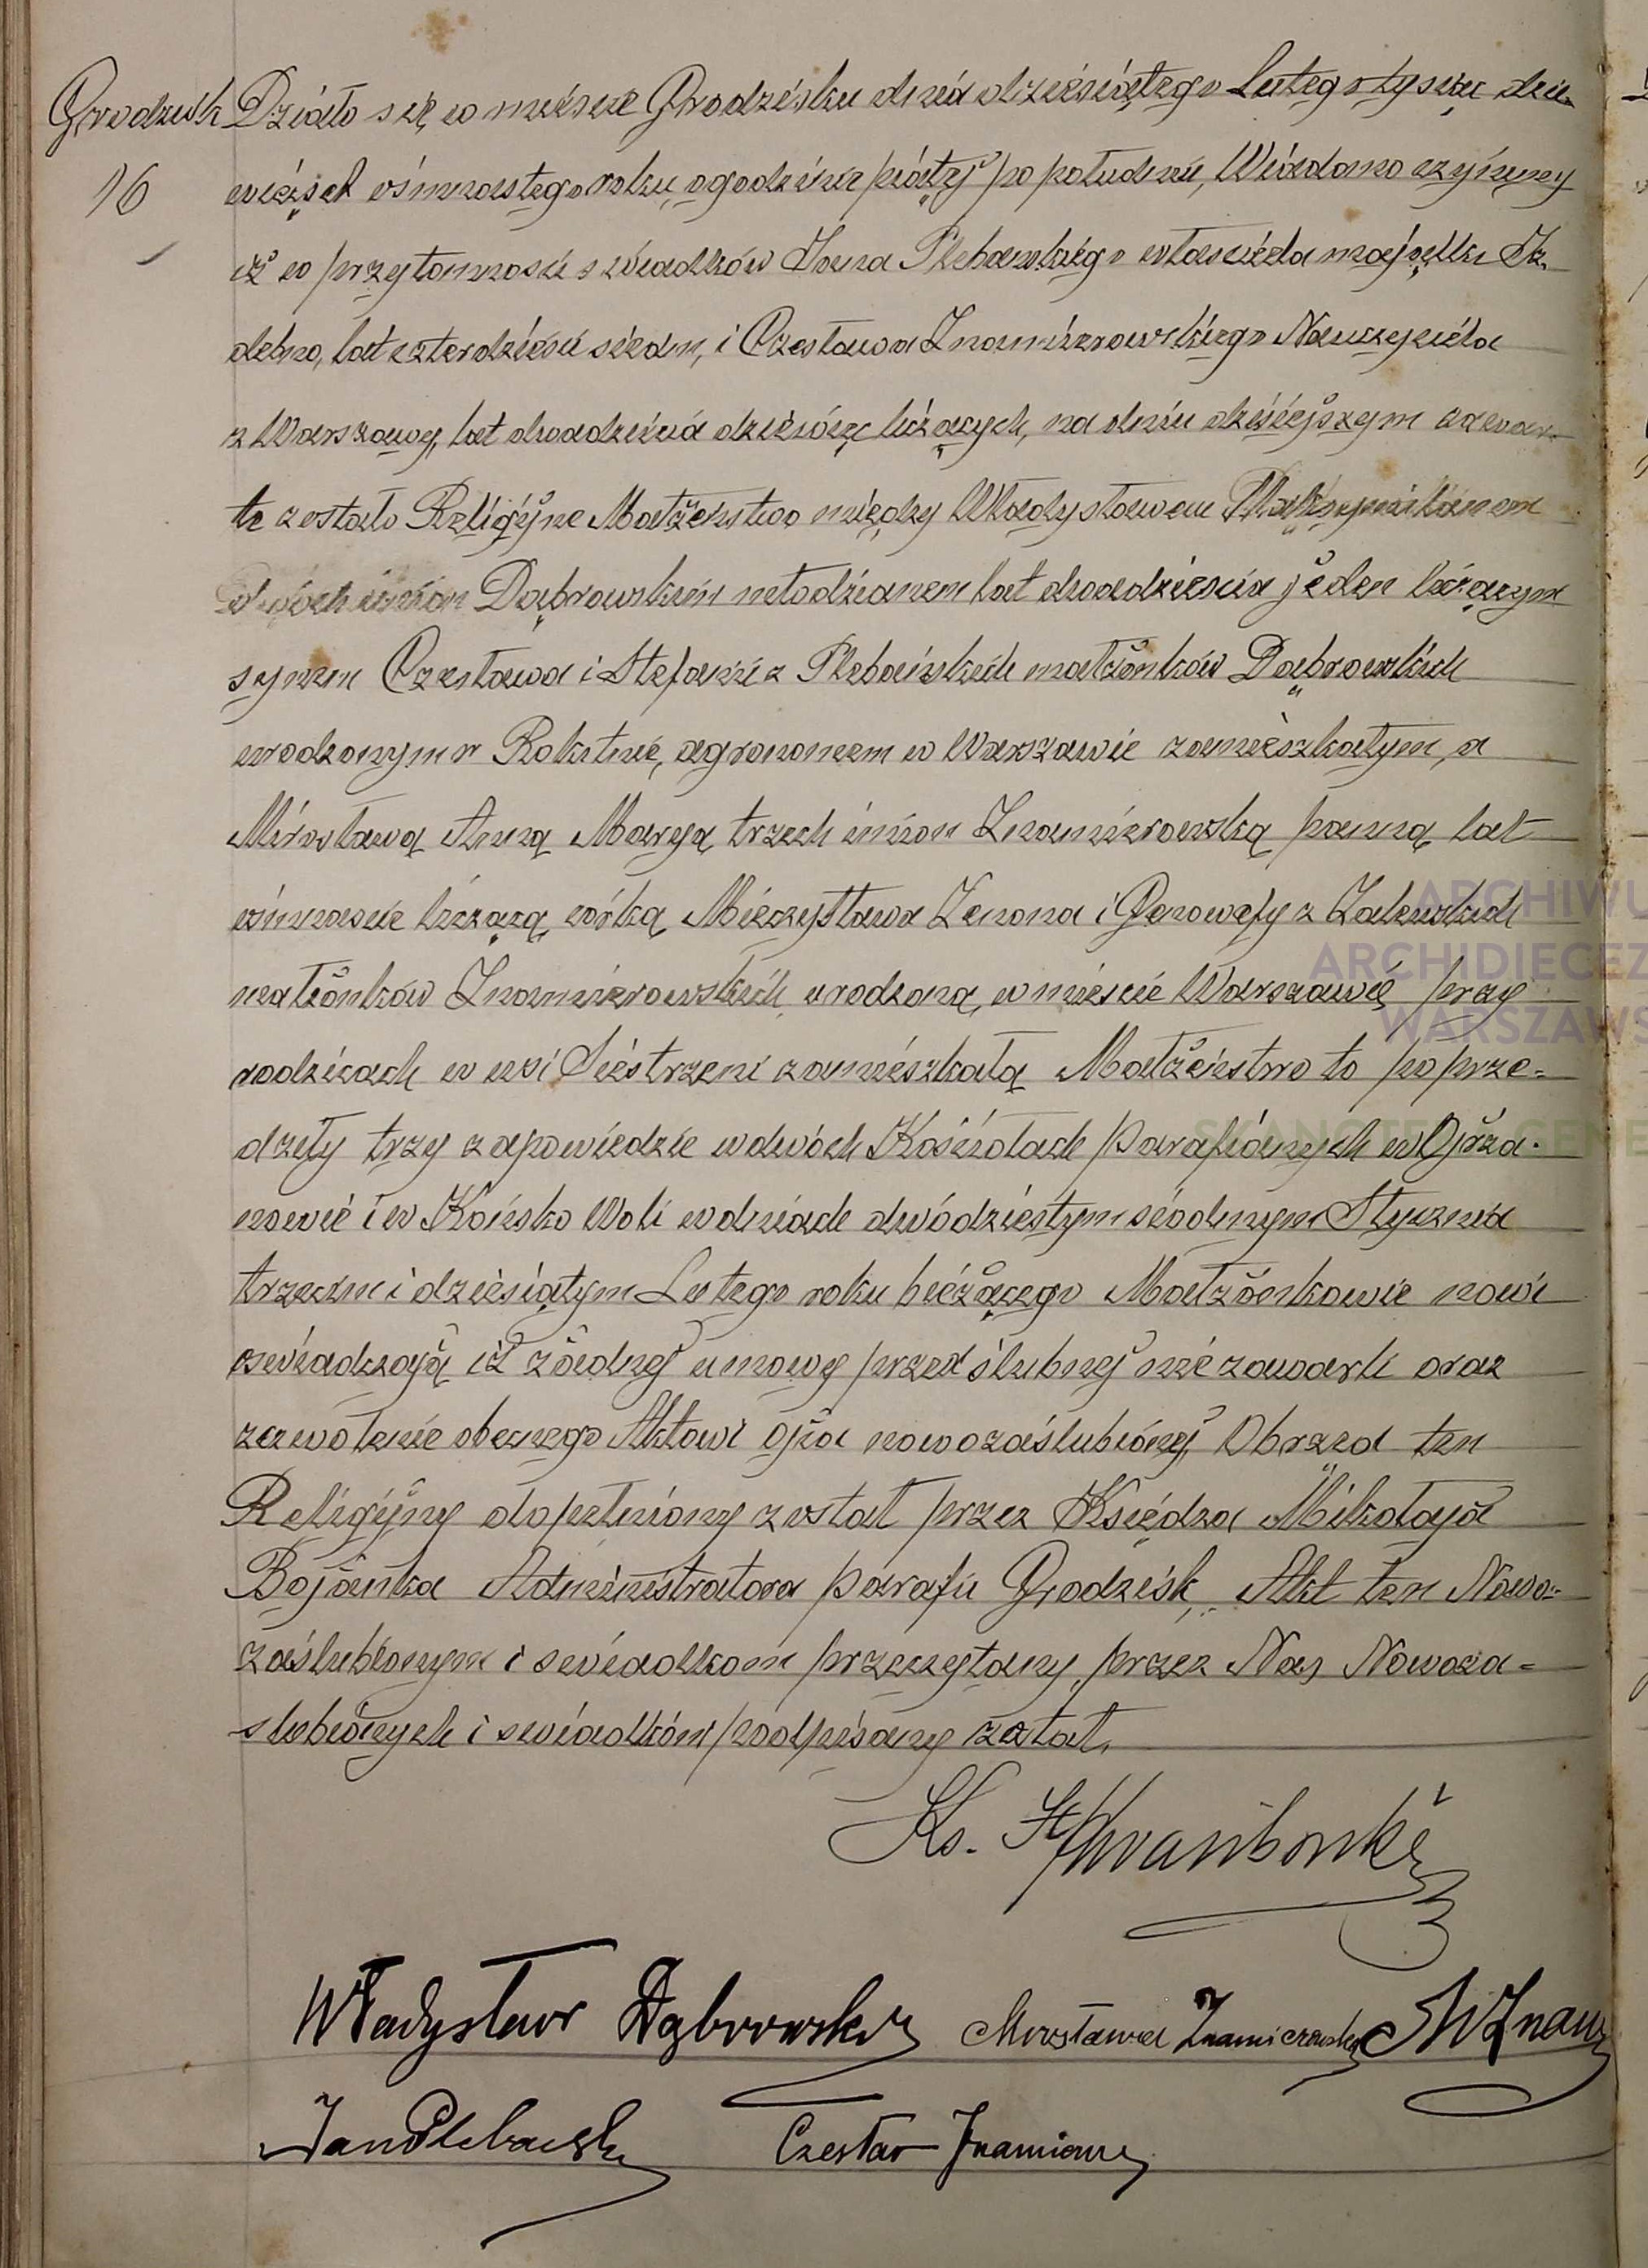 Grodzisk
16
Działo się w mieście Grodzisku dnia dziesiątego Lutego tysiąc dzie-
więset ośmnastego roku, o godzinie piątej po południu, Wiadomo czynimy
iż w przytomności świadków Jana Plebańskiego właściciela majątku Iz-
debno, lat czterdzieści siedm, i Czesława Znamierowskiego Nauczyciela
z Warszawy, lat dwadzieścia dziewięć liczących, na dniu dzisiejszym zawar-
te zostało Religijne Małżeństwo między Władysławem Maksymilianem
dwóch imion Dąbrowskim młodzianem lat dwadzieścia jeden liczącym
synem Czesława i Stefanii z Plebańskich małżonków Dąbrowskich
urodzonym w Rokitnie, agronomem w Warszawie zamieszkałym, a
Mirosławą Anną Maryą trzech imion Znamierowską panną lat
ośmnaście liczącą, córką Mieczysława Zenona i Genowefy z Zalewskich
małżonków Znamierowskich, urodzoną w mieście Warszawie przy
rodzicach w wsi Siestrzeni zamieszkałą Małżeństwo to poprze-
dziły trzy zapowiedzie w dwóch Kościołach parafialnych w Ojrza-
nowie i w Końsko Woli w dniach dwódziestym siódmym Stycznia
trzecim i dziesiątym Lutego roku bieżącego Małżonkowie nowi
oświadczają iż żadnej umowy przedślubnej nie zawarli oraz
zezwolenie obecnego Aktowi ojca nowozaślubionej, Obrzęd ten
Religijny dopełniony został przez Księdza Mikołaja
Bojanka Administratora parafii Grodzisk, Akt ten Nowo-
zaślubionym i świadkom przeczytany, przez Nas Nowoza-
ślubionych i świadków podpisany został.
Ks.
Władysław Dąbrowski Mirosława Znamierowska M Znam
Jan Plebański Czesław Znamierow
ARCHIWU
ARCHIDIECEZ
WARSZAWS